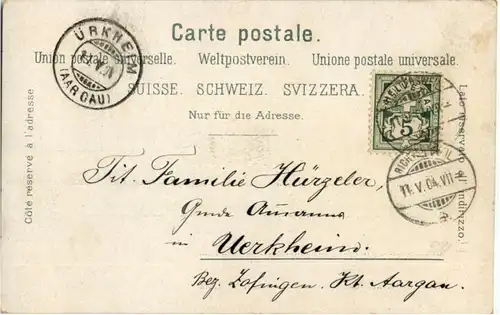 Carte postale.
Union postale universelle. Weltpostverein. Unione postale universale.
SUISSE. SCHWEIZ. SVIZZERA.
Nur für die Adresse.
Côté réservé à l'adresse
Lato riservato all'indirizzo.
ÜRKHEIM
(AARGAU)
5
11.V.04.VII
Tit. Familie Hürzeler,
in Uerkheim.
Bez. Zofingen, Kt. Aargau.